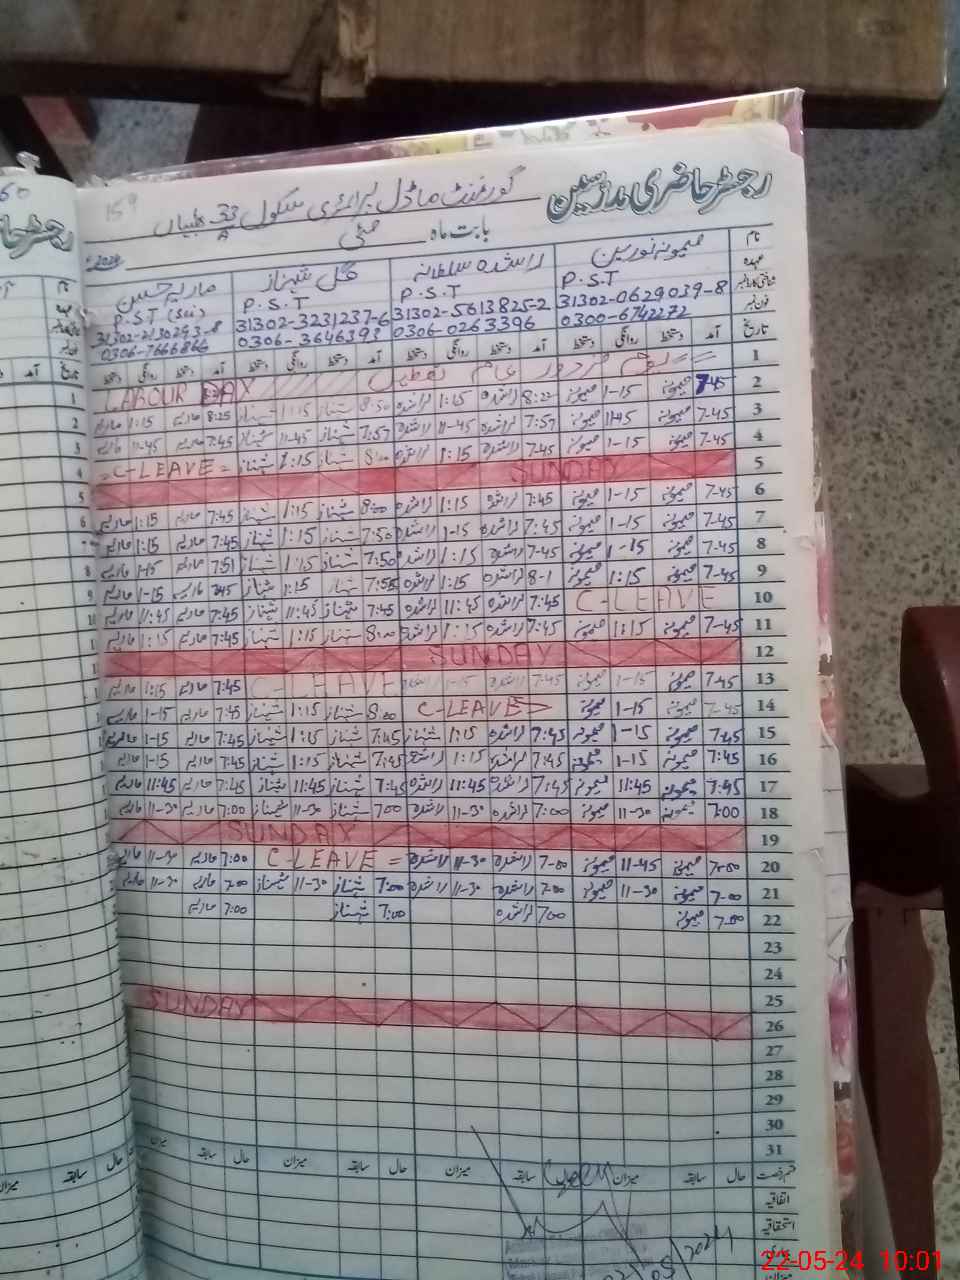 رجسٹر حاضری مدرسین
گورنمنٹ ماڈل پرائمری سکول
159
بابت ماہ مئی 2024
نام میمونہ نورین راشدہ سلطانہ گل شہناز ماریہ حسین
عہدہ P.S.T P.S.T P.S.T P.S.T (Sci)
31302-0629039-8 31302-5613825-2 31302-3231237-6 31302-2130293-8
فون نمبر 0300-6742272 0306-0263396 0306-3646393 0306-7666866
تاریخ آمد دستخط روانگی دستخط آمد دستخط روانگی دستخط آمد دستخط روانگی دستخط آمد دستخط روانگی دستخط
1 یوم مزدور عام تعطیل LABOUR DAY
2 7-45 میمونہ 1-15 میمونہ 8:22 راشدہ 1:15 راشدہ 8:50 شہناز 1:15 شہناز 8:25 ماریہ 1:15 ماریہ
3 7-45 میمونہ 11-45 میمونہ 7:57 راشدہ 11-45 راشدہ 7:57 شہناز 11-45 شہناز 7:45 ماریہ 11-45 ماریہ
4 7-45 میمونہ 1-15 میمونہ 7-45 راشدہ 1:15 راشدہ 8:00 شہناز 1:15 شہناز = C-LEAVE =
5 SUNDAY
6 7-45 میمونہ 1-15 میمونہ 7:45 راشدہ 1:15 راشدہ 8:00 شہناز 1:15 شہناز 7:45 ماریہ 1:15 ماریہ
7 7-45 میمونہ 1-15 میمونہ 7:45 راشدہ 1-15 راشدہ 7:50 شہناز 1:15 شہناز 7:45 ماریہ 1:15 ماریہ
8 7-45 میمونہ 1-15 میمونہ 7-45 راشدہ 1:15 راشدہ 7:50 شہناز 1:15 شہناز 7:51 ماریہ 1-15 ماریہ
9 7-45 میمونہ 1:15 میمونہ 8-1 راشدہ 1:15 راشدہ 7:55 شہناز 1:15 شہناز 7:45 ماریہ 1-15 ماریہ
10 C-LEAVE 7:45 راشدہ 11:45 راشدہ 7:45 شہناز 11:45 شہناز 7:45 ماریہ 11:45 ماریہ
11 7-45 میمونہ 1:15 میمونہ 7:45 راشدہ 1:15 راشدہ 8:00 شہناز 1:15 شہناز 7:45 ماریہ 1:15 ماریہ
12 SUNDAY
13 7-45 میمونہ 1-15 میمونہ 7-45 راشدہ 1-15 راشدہ C-LEAVE 7:45 ماریہ 1:15 ماریہ
14 7-45 میمونہ 1-15 میمونہ C-LEAVE 8:00 شہناز 1:15 شہناز 7:45 ماریہ 1-15 ماریہ
15 7-45 میمونہ 1-15 میمونہ 7:45 راشدہ 1:15 شہناز 7:45 شہناز 1:15 شہناز 7:45 ماریہ 1-15 ماریہ
16 7:45 میمونہ 1-15 میمونہ 7:45 راشدہ 1:15 راشدہ 7:45 شہناز 1:15 شہناز 7:45 ماریہ 1-15 ماریہ
17 7:45 میمونہ 11:45 میمونہ 7:45 راشدہ 11:45 راشدہ 7:45 شہناز 11:45 شہناز 7:45 ماریہ 11:45 ماریہ
18 7:00 میمونہ 11-30 میمونہ 7:00 راشدہ 11-30 راشدہ 7:00 شہناز 11-30 شہناز 7:00 ماریہ 11-30 ماریہ
19 SUNDAY
20 7-00 میمونہ 11-45 میمونہ 7-00 راشدہ 11-30 راشدہ C-LEAVE = 7:00 ماریہ 11-30 ماریہ
21 7-00 میمونہ 11-30 میمونہ 7:00 راشدہ 11-30 راشدہ 7:00 شہناز 11-30 شہناز 7:00 ماریہ 11-30 ماریہ
22 7-00 میمونہ 7:00 راشدہ 7:00 شہناز 7:00 ماریہ
23
24
25
26 SUNDAY
27
28
29
30
31
قسم رخصت حال سابقہ میزان حال سابقہ میزان حال سابقہ میزان حال سابقہ میزان
اتفاقیہ
استحقاقیہ
22-05-24 10:01